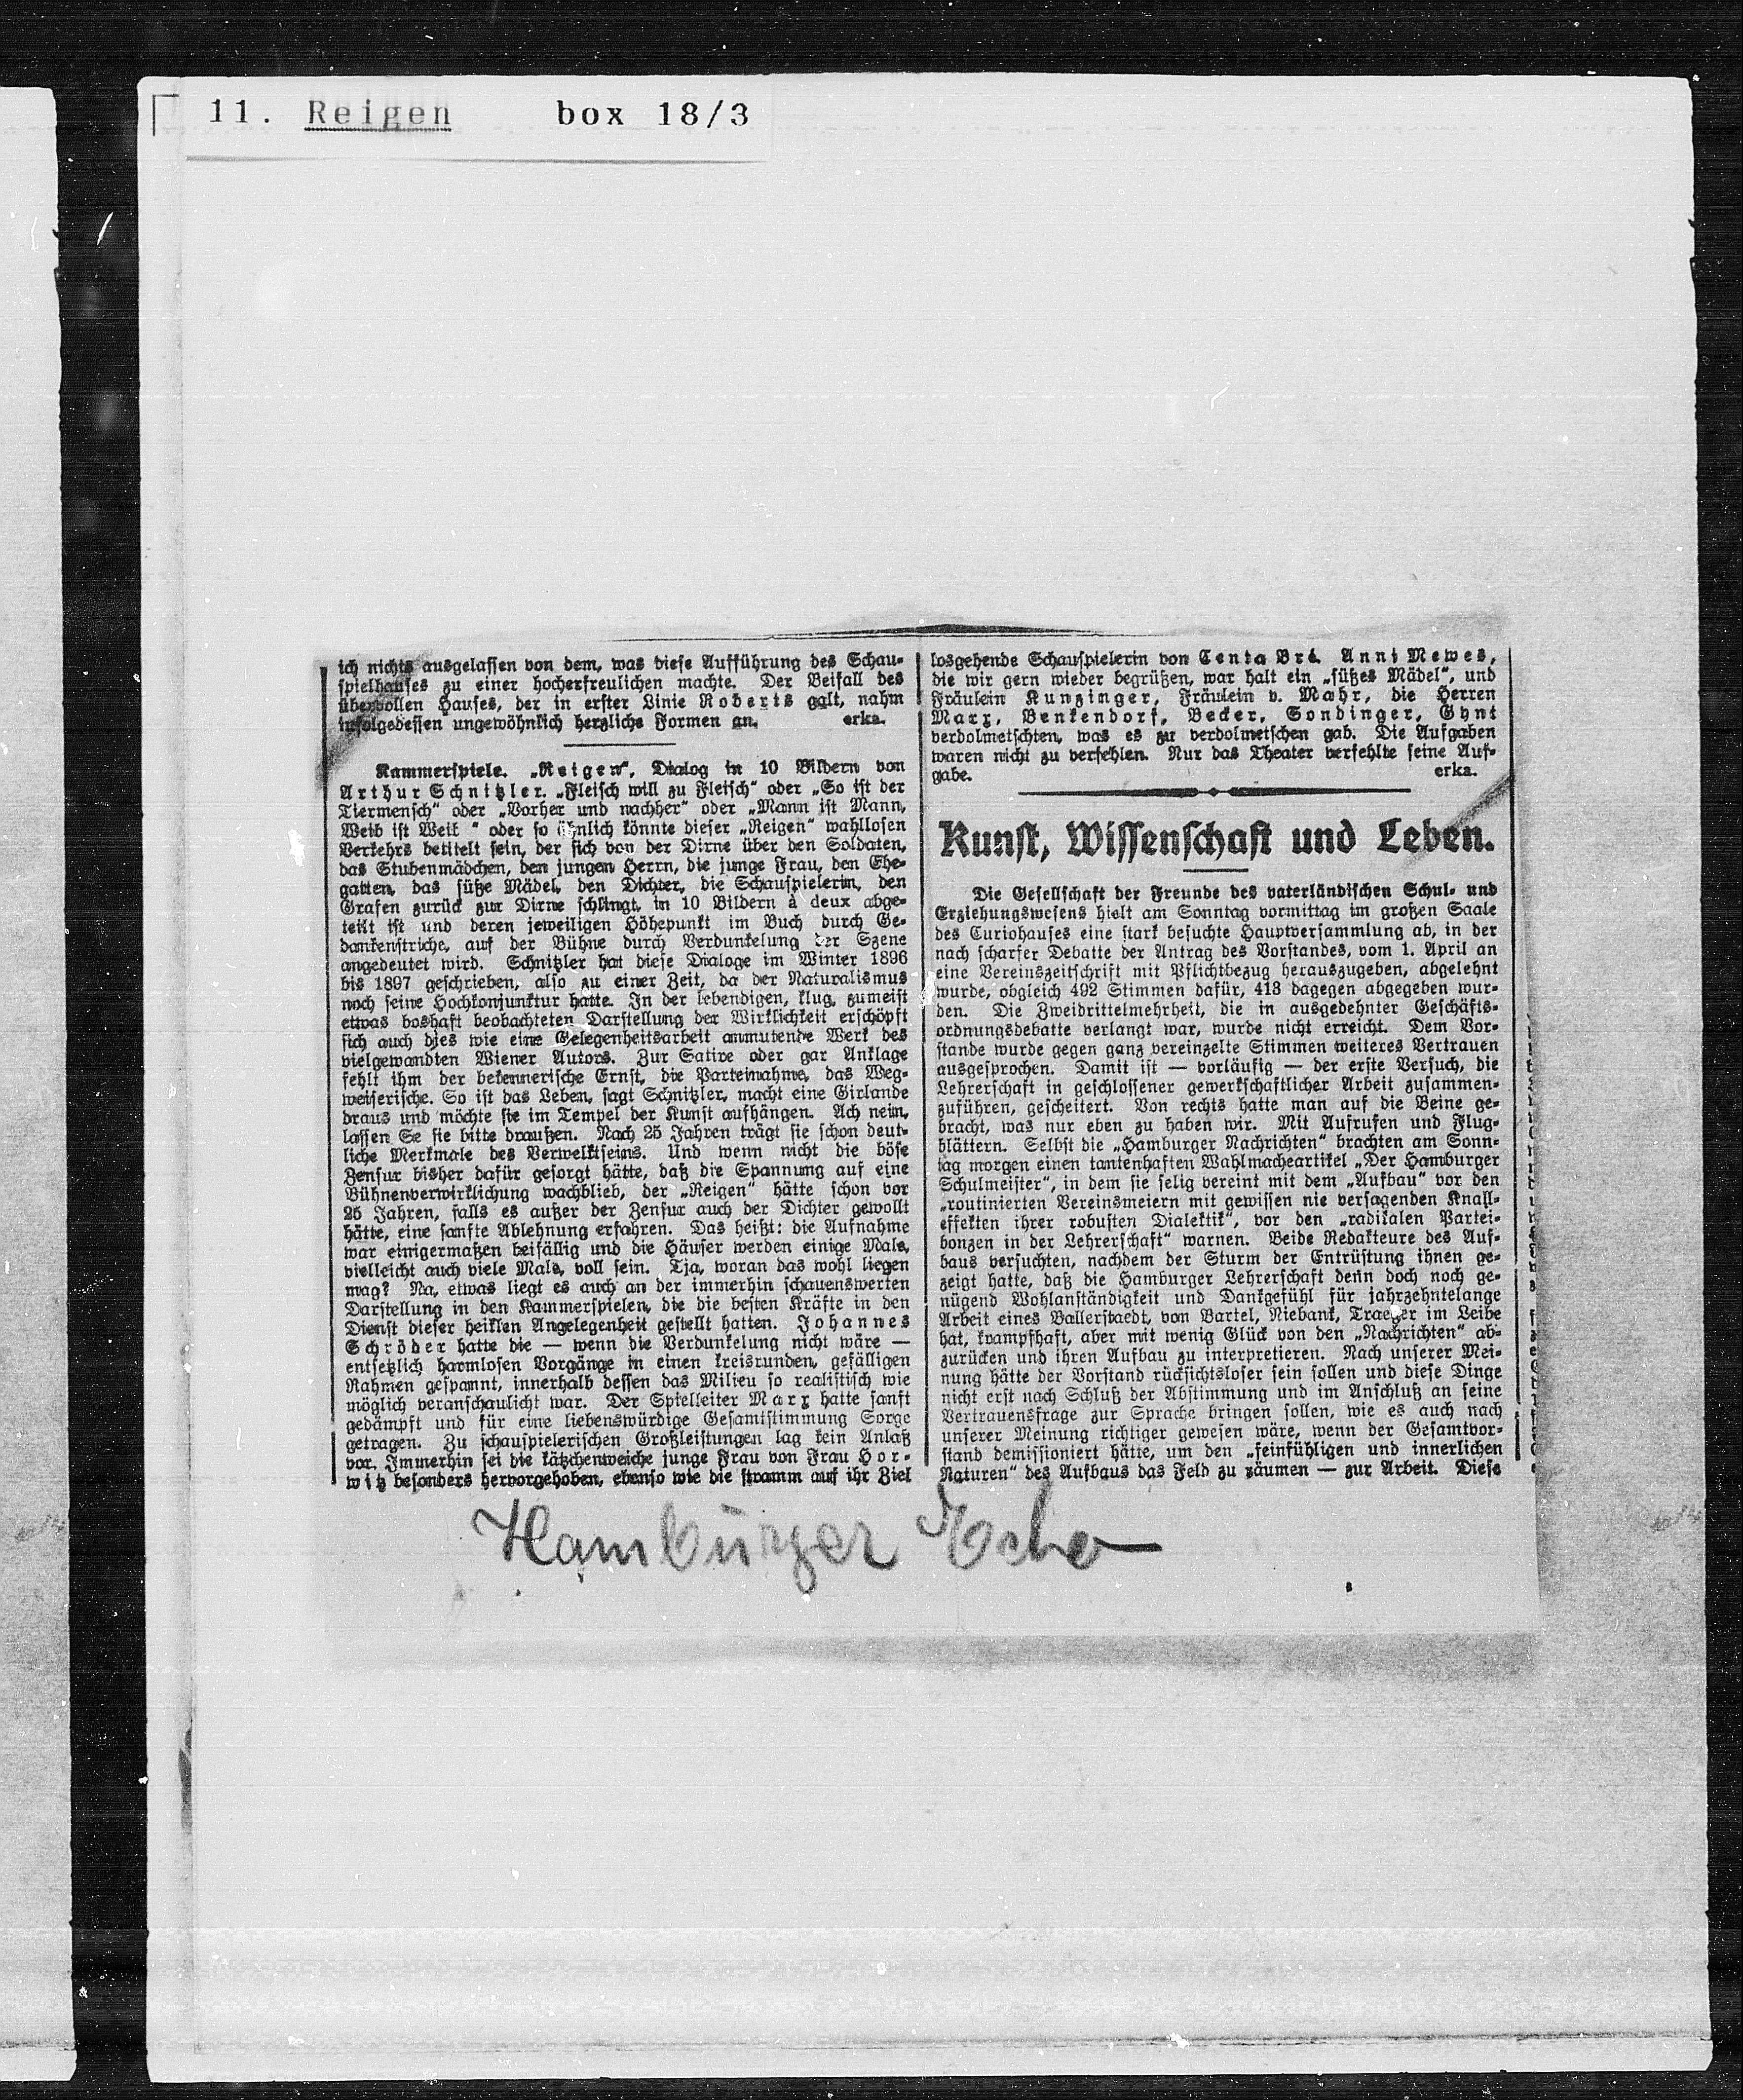 11. Reigen box 18/3
ich nichts ausgelassen von dem, was diese Aufführung des Schau-
spielhauses zu einer hocherfreulichen machte. Der Beifall des
übervollen Hauses, der in erster Linie Roberts galt, nahm
infolgedessen ungewöhnlich herzliche Formen an. erka.
Kammerspiele. „Reigen“, Dialog in 10 Bildern von
Arthur Schnitzler. „Fleisch will zu Fleisch“ oder „So ist der
Tiermensch“ oder „Vorher und nachher“ oder „Mann ist Mann,
Weib ist Weib“ oder so ähnlich könnte dieser „Reigen“ wahllosen
Verkehrs betitelt sein, der sich von der Dirne über den Soldaten,
das Stubenmädchen, den jungen Herrn, die junge Frau, den Ehe-
gatten, das süße Mädel, den Dichter, die Schauspielerin, den
Grafen zurück zur Dirne schlingt, in 10 Bildern à deux abge-
teilt ist und deren jeweiligen Höhepunkt im Buch durch Ge-
dankenstriche, auf der Bühne durch Verdunkelung der Szene
angedeutet wird. Schnitzler hat diese Dialoge im Winter 1896
bis 1897 geschrieben, also zu einer Zeit, da der Naturalismus
noch seine Hochkonjunktur hatte. In der lebendigen, klug, zumeist
etwas boshaft beobachteten Darstellung der Wirklichkeit erschöpft
sich auch dies wie eine Gelegenheitsarbeit anmutende Werk des
vielgewandten Wiener Autors. Zur Satire oder gar Anklage
fehlt ihm der bekennerische Ernst, die Parteinahme, das Weg-
weiserische. So ist das Leben, sagt Schnitzler, macht eine Girlande
draus und möchte sie im Tempel der Kunst aufhängen. Ach nein,
lassen Se sie bitte draußen. Nach 25 Jahren trägt sie schon deut-
liche Merkmale des Verwelktseins. Und wenn nicht die böse
Zensur bisher dafür gesorgt hätte, daß die Spannung auf eine
Bühnenverwirklichung wachblieb, der „Reigen“ hätte schon vor
25 Jahren, falls es außer der Zensur auch der Dichter gewollt
hätte, eine sanfte Ablehnung erfahren. Das heißt: die Aufnahme
war einigermaßen beifällig und die Häuser werden einige Male,
vielleicht auch viele Male, voll sein. Tja, woran das wohl liegen
mag? Na, etwas liegt es auch an der immerhin schauenswerten
Darstellung in den Kammerspielen, die die besten Kräfte in den
Dienst dieser heiklen Angelegenheit gestellt hatten. Johannes
Schröder hatte die — wenn die Verdunkelung nicht wäre —
entsetzlich harmlosen Vorgänge in einen kreisrunden, gefälligen
Rahmen gespannt, innerhalb dessen das Milieu so realistisch wie
möglich veranschaulicht war. Der Spielleiter Marx hatte sanft
gedämpft und für eine liebenswürdige Gesamtstimmung Sorge
getragen. Zu schauspielerischen Großleistungen lag kein Anlaß
vor. Immerhin sei die kätzchenweiche junge Frau von Frau Hor-
witz besonders hervorgehoben, ebenso wie die stramm auf ihr Ziel
losgehende Schauspielerin von Centa Bré. Anni Mewes,
die wir gern wieder begrüßen, war halt ein „süßes Mädel“, und
Fräulein Kunzinger, Fräulein v. Mahr, die Herren
Marx, Benkendorf, Becker, Sondinger, Gynt
verdolmetschten, was es zu verdolmetschen gab. Die Aufgaben
waren nicht zu verfehlen. Nur das Theater verfehlte seine Auf-
gabe. erka.
Kunst, Wissenschaft und Leben.
Die Gesellschaft der Freunde des vaterländischen Schul- und
Erziehungswesens hielt am Sonntag vormittag im großen Saale
des Curiohauses eine stark besuchte Hauptversammlung ab, in der
nach scharfer Debatte der Antrag des Vorstandes, vom 1. April an
eine Vereinszeitschrift mit Pflichtbezug herauszugeben, abgelehnt
wurde, obgleich 492 Stimmen dafür, 413 dagegen abgegeben wur-
den. Die Zweidrittelmehrheit, die in ausgedehnter Geschäfts-
ordnungsdebatte verlangt war, wurde nicht erreicht. Dem Vor-
stande wurde gegen ganz vereinzelte Stimmen weiteres Vertrauen
ausgesprochen. Damit ist — vorläufig — der erste Versuch, die
Lehrerschaft in geschlossener gewerkschaftlicher Arbeit zusammen-
zuführen, gescheitert. Von rechts hatte man auf die Beine ge-
bracht, was nur eben zu haben wir. Mit Aufrufen und Flug-
blättern. Selbst die „Hamburger Nachrichten“ brachten am Sonn-
tag morgen einen tantenhaften Wahlmacheartikel „Der Hamburger
Schulmeister“, in dem sie selig vereint mit dem „Aufbau“ vor den
„routinierten Vereinsmeiern mit gewissen nie versagenden Knall-
effekten ihrer robusten Dialektik“, vor den „radikalen Partei-
bonzen in der Lehrerschaft“ warnen. Beide Redakteure des Auf-
baus versuchten, nachdem der Sturm der Entrüstung ihnen ge-
zeigt hatte, daß die Hamburger Lehrerschaft denn doch noch ge-
nügend Wohlanständigkeit und Dankgefühl für jahrzehntelange
Arbeit eines Ballerstaedt, von Bartel, Niebank, Traeger im Leibe
hat, krampfhaft, aber mit wenig Glück von den „Nachrichten“ ab-
zurücken und ihren Aufbau zu interpretieren. Nach unserer Mei-
nung hätte der Vorstand rücksichtsloser sein sollen und diese Dinge
nicht erst nach Schluß der Abstimmung und im Anschluß an seine
Vertrauensfrage zur Sprache bringen sollen, wie es auch nach
unserer Meinung richtiger gewesen wäre, wenn der Gesamtvor-
stand demissioniert hätte, um den „feinfühligen und innerlichen
Naturen“ des Aufbaus das Feld zu räumen — zur Arbeit. Diese
Hamburger Echo